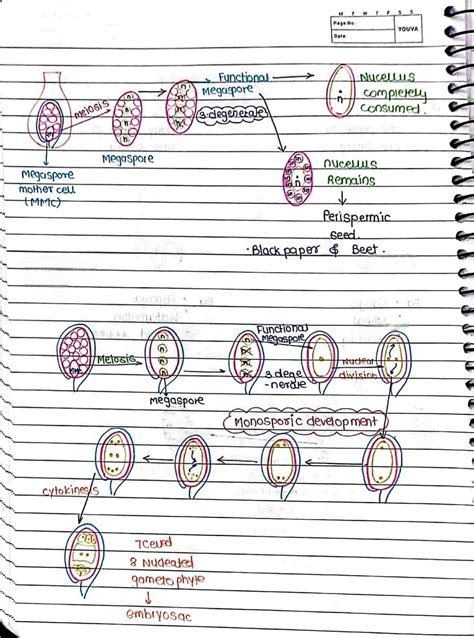 M T W T F S S
Page No.:
Date:
YOUVA
Functional
Megaspore
Nucellus
completely
consumed.
n
meiosis
3-degenerate
Megaspore
Megaspore
mother cell
(MMC)
Nucellus
Remains
Perispermic
seed.
• Black paper & Beet.
Functional
Megaspore
Meiosis
3 dege
-nerate
Nuclear
division
Megaspore
Monosporic development
cytokinesis
7 celled
8 Nucleated
gametophyte
embryosac